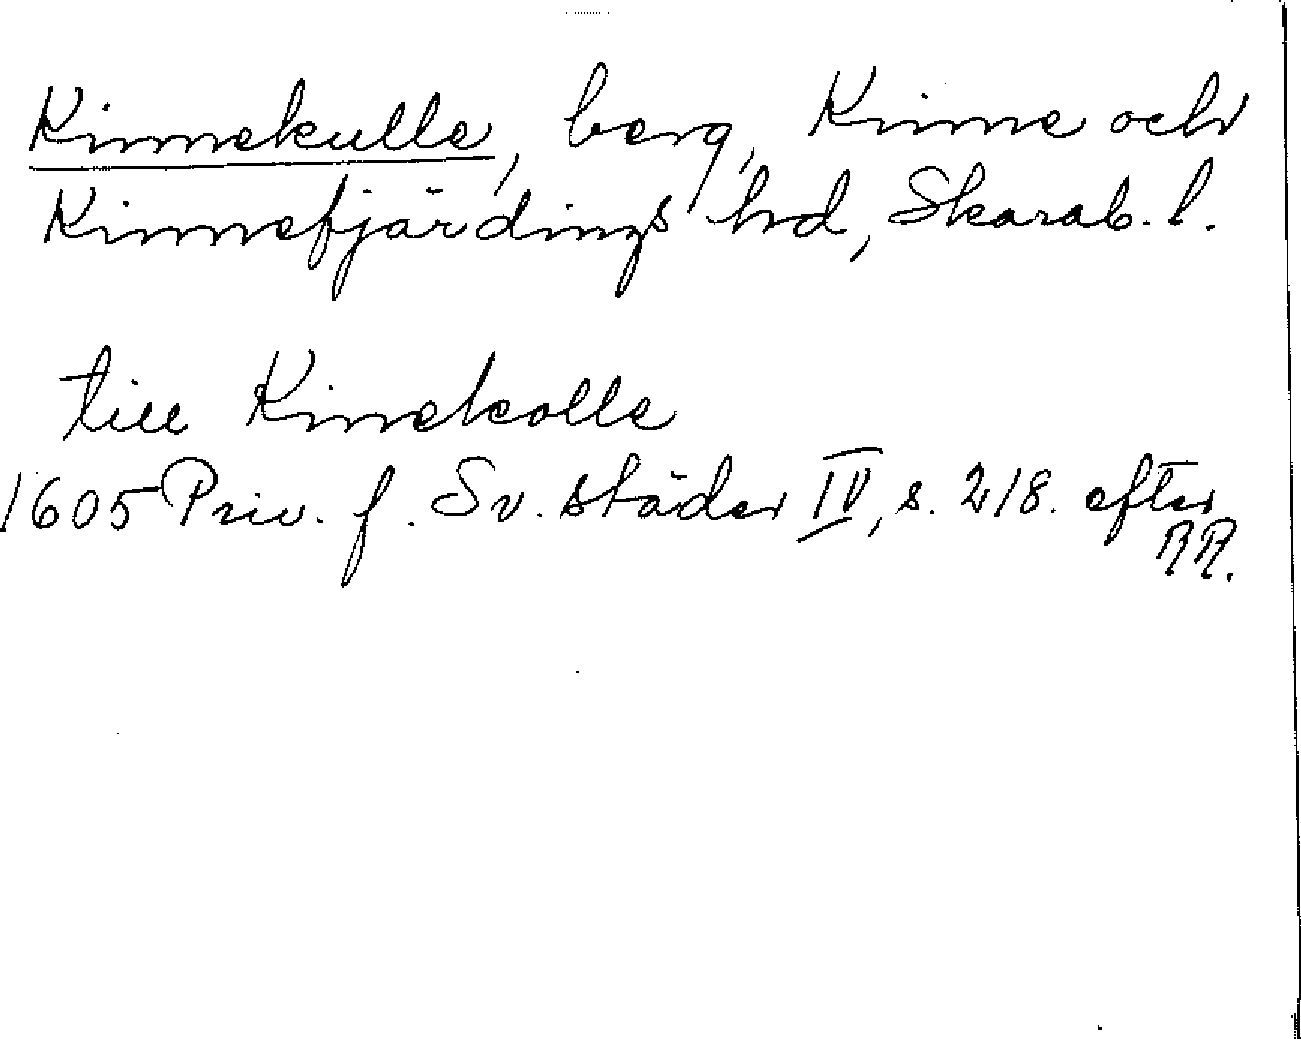 Kinnekulle, berg, Kinne och
Kinnefjärdings hd, Skarab. l.
till Kinekolle
1605 Priv. f. Sv. städer IV, s. 218. efter
RR.